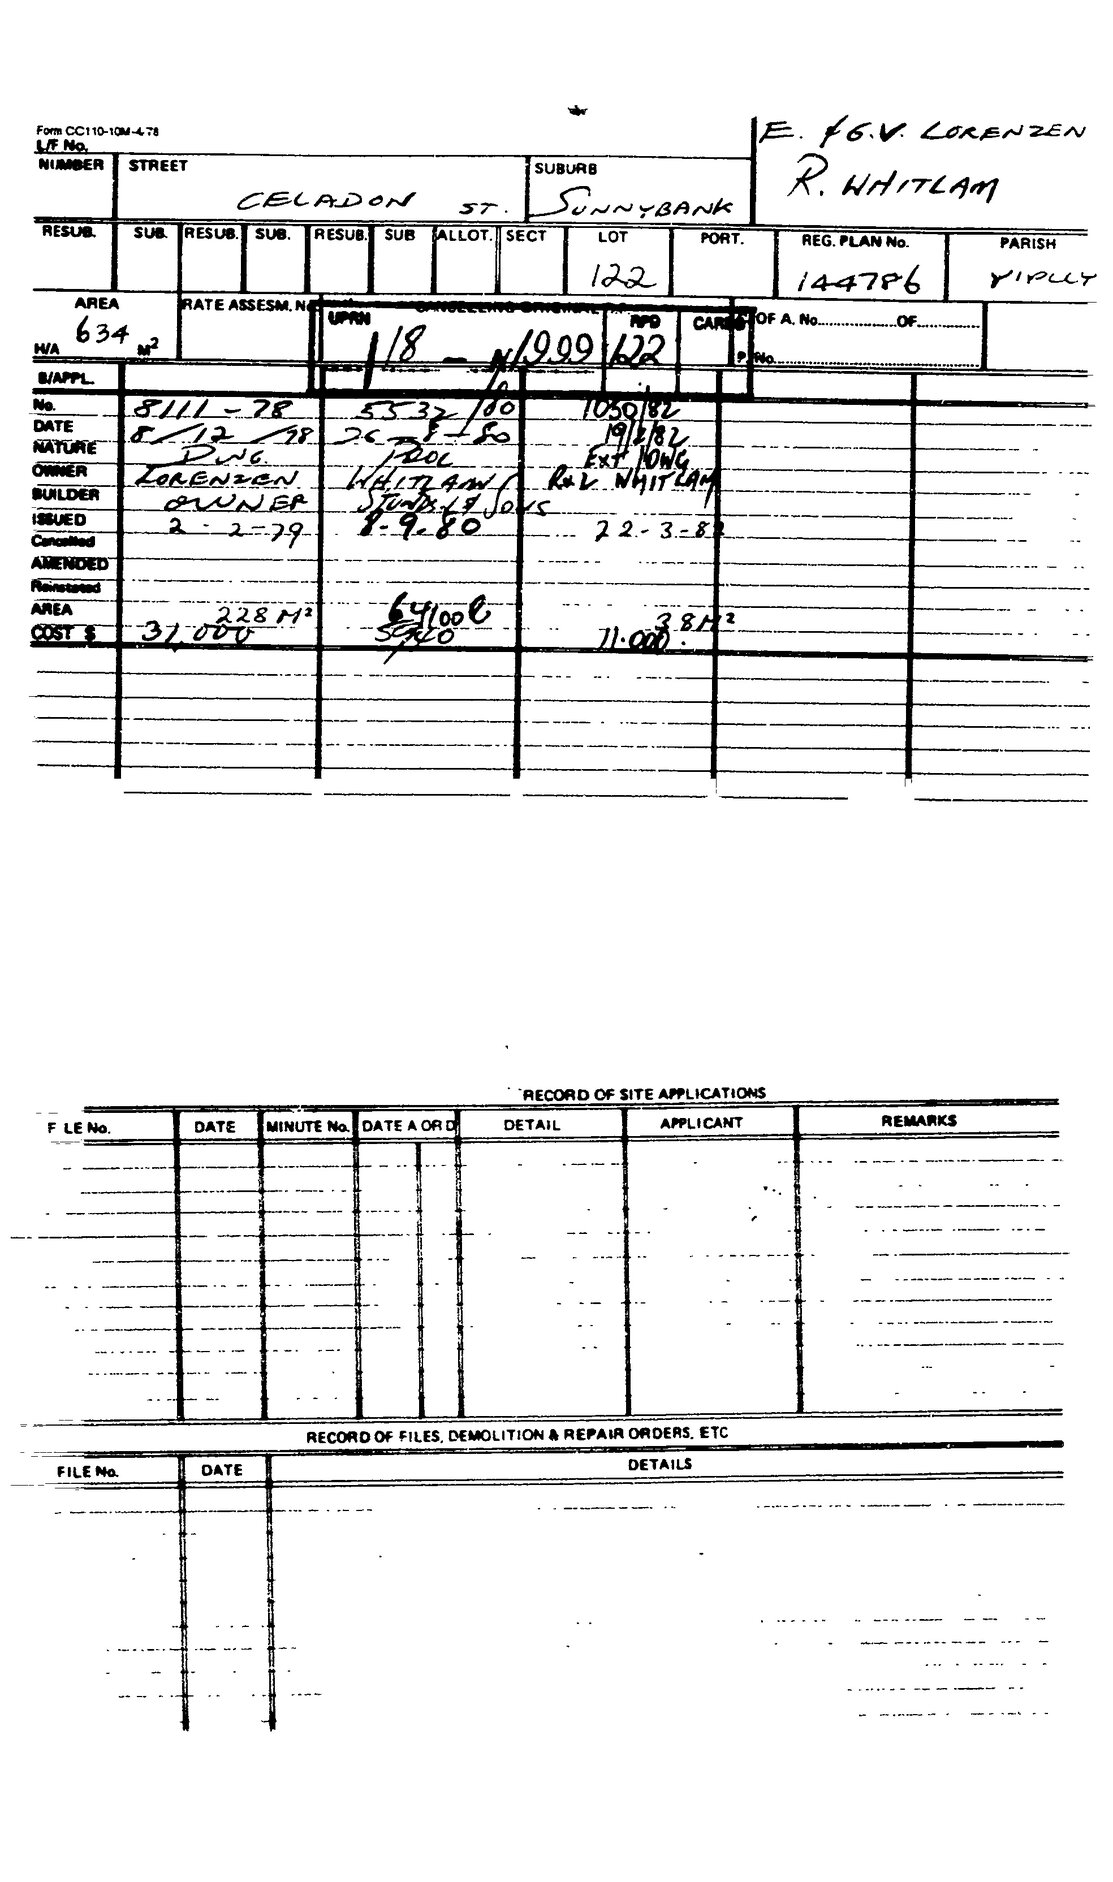 Form CC110-10M-4.78
L/F No.
E. & G.V. LORENZEN
R. WHITLAM
NUMBER STREET SUBURB
CELADON ST. SUNNYBANK
RESUB. SUB. RESUB. SUB. RESUB. SUB ALLOT. SECT LOT PORT. REG. PLAN No. PARISH
122 144786
AREA RATE ASSESM. No
634 M²
H/A
UPRN RPD CARDS
118 - 122
OF A. No. OF
P. No.
B/APPL.
No. 8111-78 5532/80 1050/82
DATE 8/12/78 26-8-80 19/2/82
NATURE DWG. POOL EXT/DWG
OWNER LORENZEN WHITLAM R&V WHITLAM
BUILDER OWNER & SONS
ISSUED 2-2-79 8-9-80 22-3-82
Cancelled
AMENDED
Reinstated
AREA 228 M² 64100 38M²
COST $ 31,000 11.000.
RECORD OF SITE APPLICATIONS
F LE No. DATE MINUTE No. DATE A OR D DETAIL APPLICANT REMARKS
RECORD OF FILES, DEMOLITION & REPAIR ORDERS, ETC
FILE No. DATE DETAILS